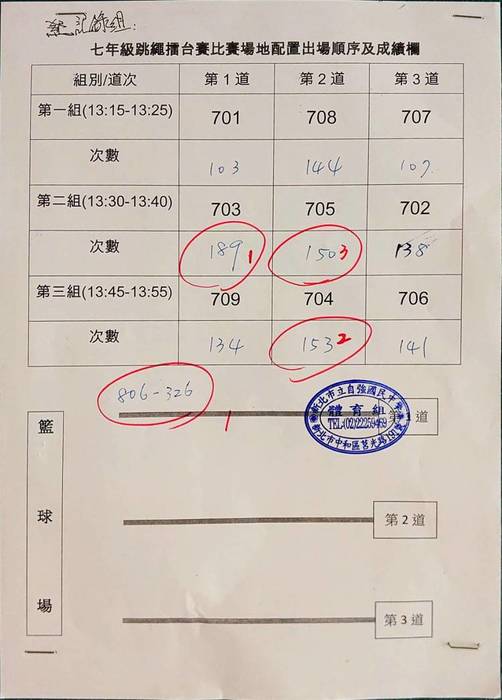 記錄組:
七年級跳繩擂台賽比賽場地配置出場順序及成績欄
組別/道次 第1道 第2道 第3道
第一組(13:15-13:25) 701 708 707
次數 103 144 107
第二組(13:30-13:40) 703 705 702
次數 189 1 150 3 138
第三組(13:45-13:55) 709 704 706
次數 134 153 2 141
806-326
1
新北市立自強國民中學
體育組
TEL:(02)22259469
新北市中和區莒光路191號
1道
籃球場
第2道
第3道